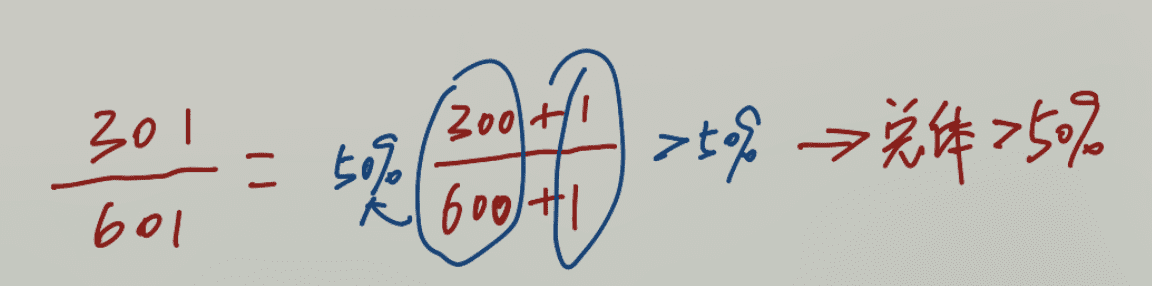 301/601 = 50% (300+1)/(600+1) >50% → 总体>50%